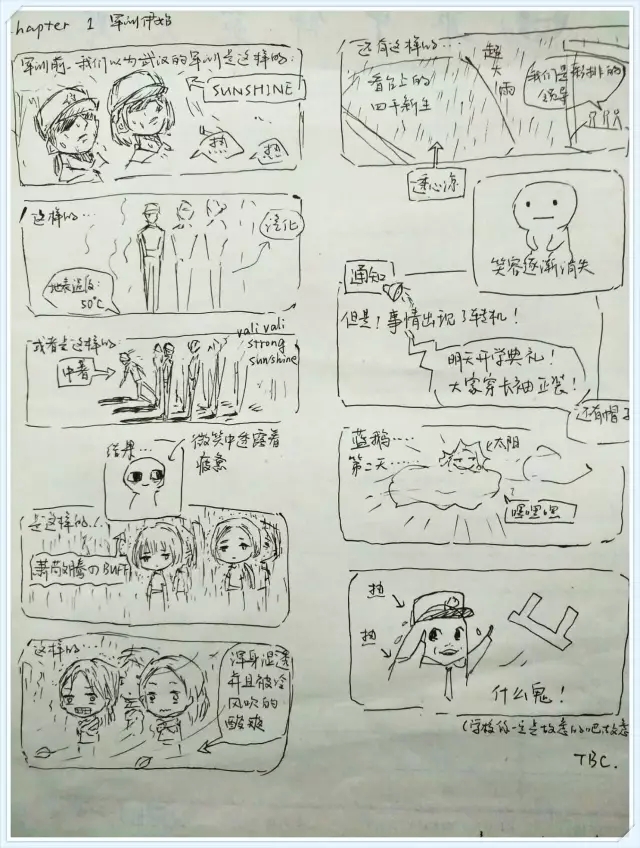 hapter 1 军训伊始
军训前,我们以为武汉的军训是这样的:
SUNSHINE
热
热
这样的…
溶化
地表温度:
50℃
或者是这样的:
vali vali
strong
sunshine
中暑
结果…
微笑中透露着
疲惫
是这样的…
萧敬腾のBUFF
这样的…
浑身湿透
并且被冷
风吹的
酸爽
还有这样的…
超
大
雨
看台上的
四千新生
我们是
彩排的
领导
透心凉
笑容逐渐消失
通知
但是!事情出现了转机!
明天开学典礼!
大家穿长袖正装!
还有帽子
蓝鹅……
第二天……
太阳
嘿嘿嘿
热
热
什么鬼!
(学校你一定是故意的吧,故意
TBC.